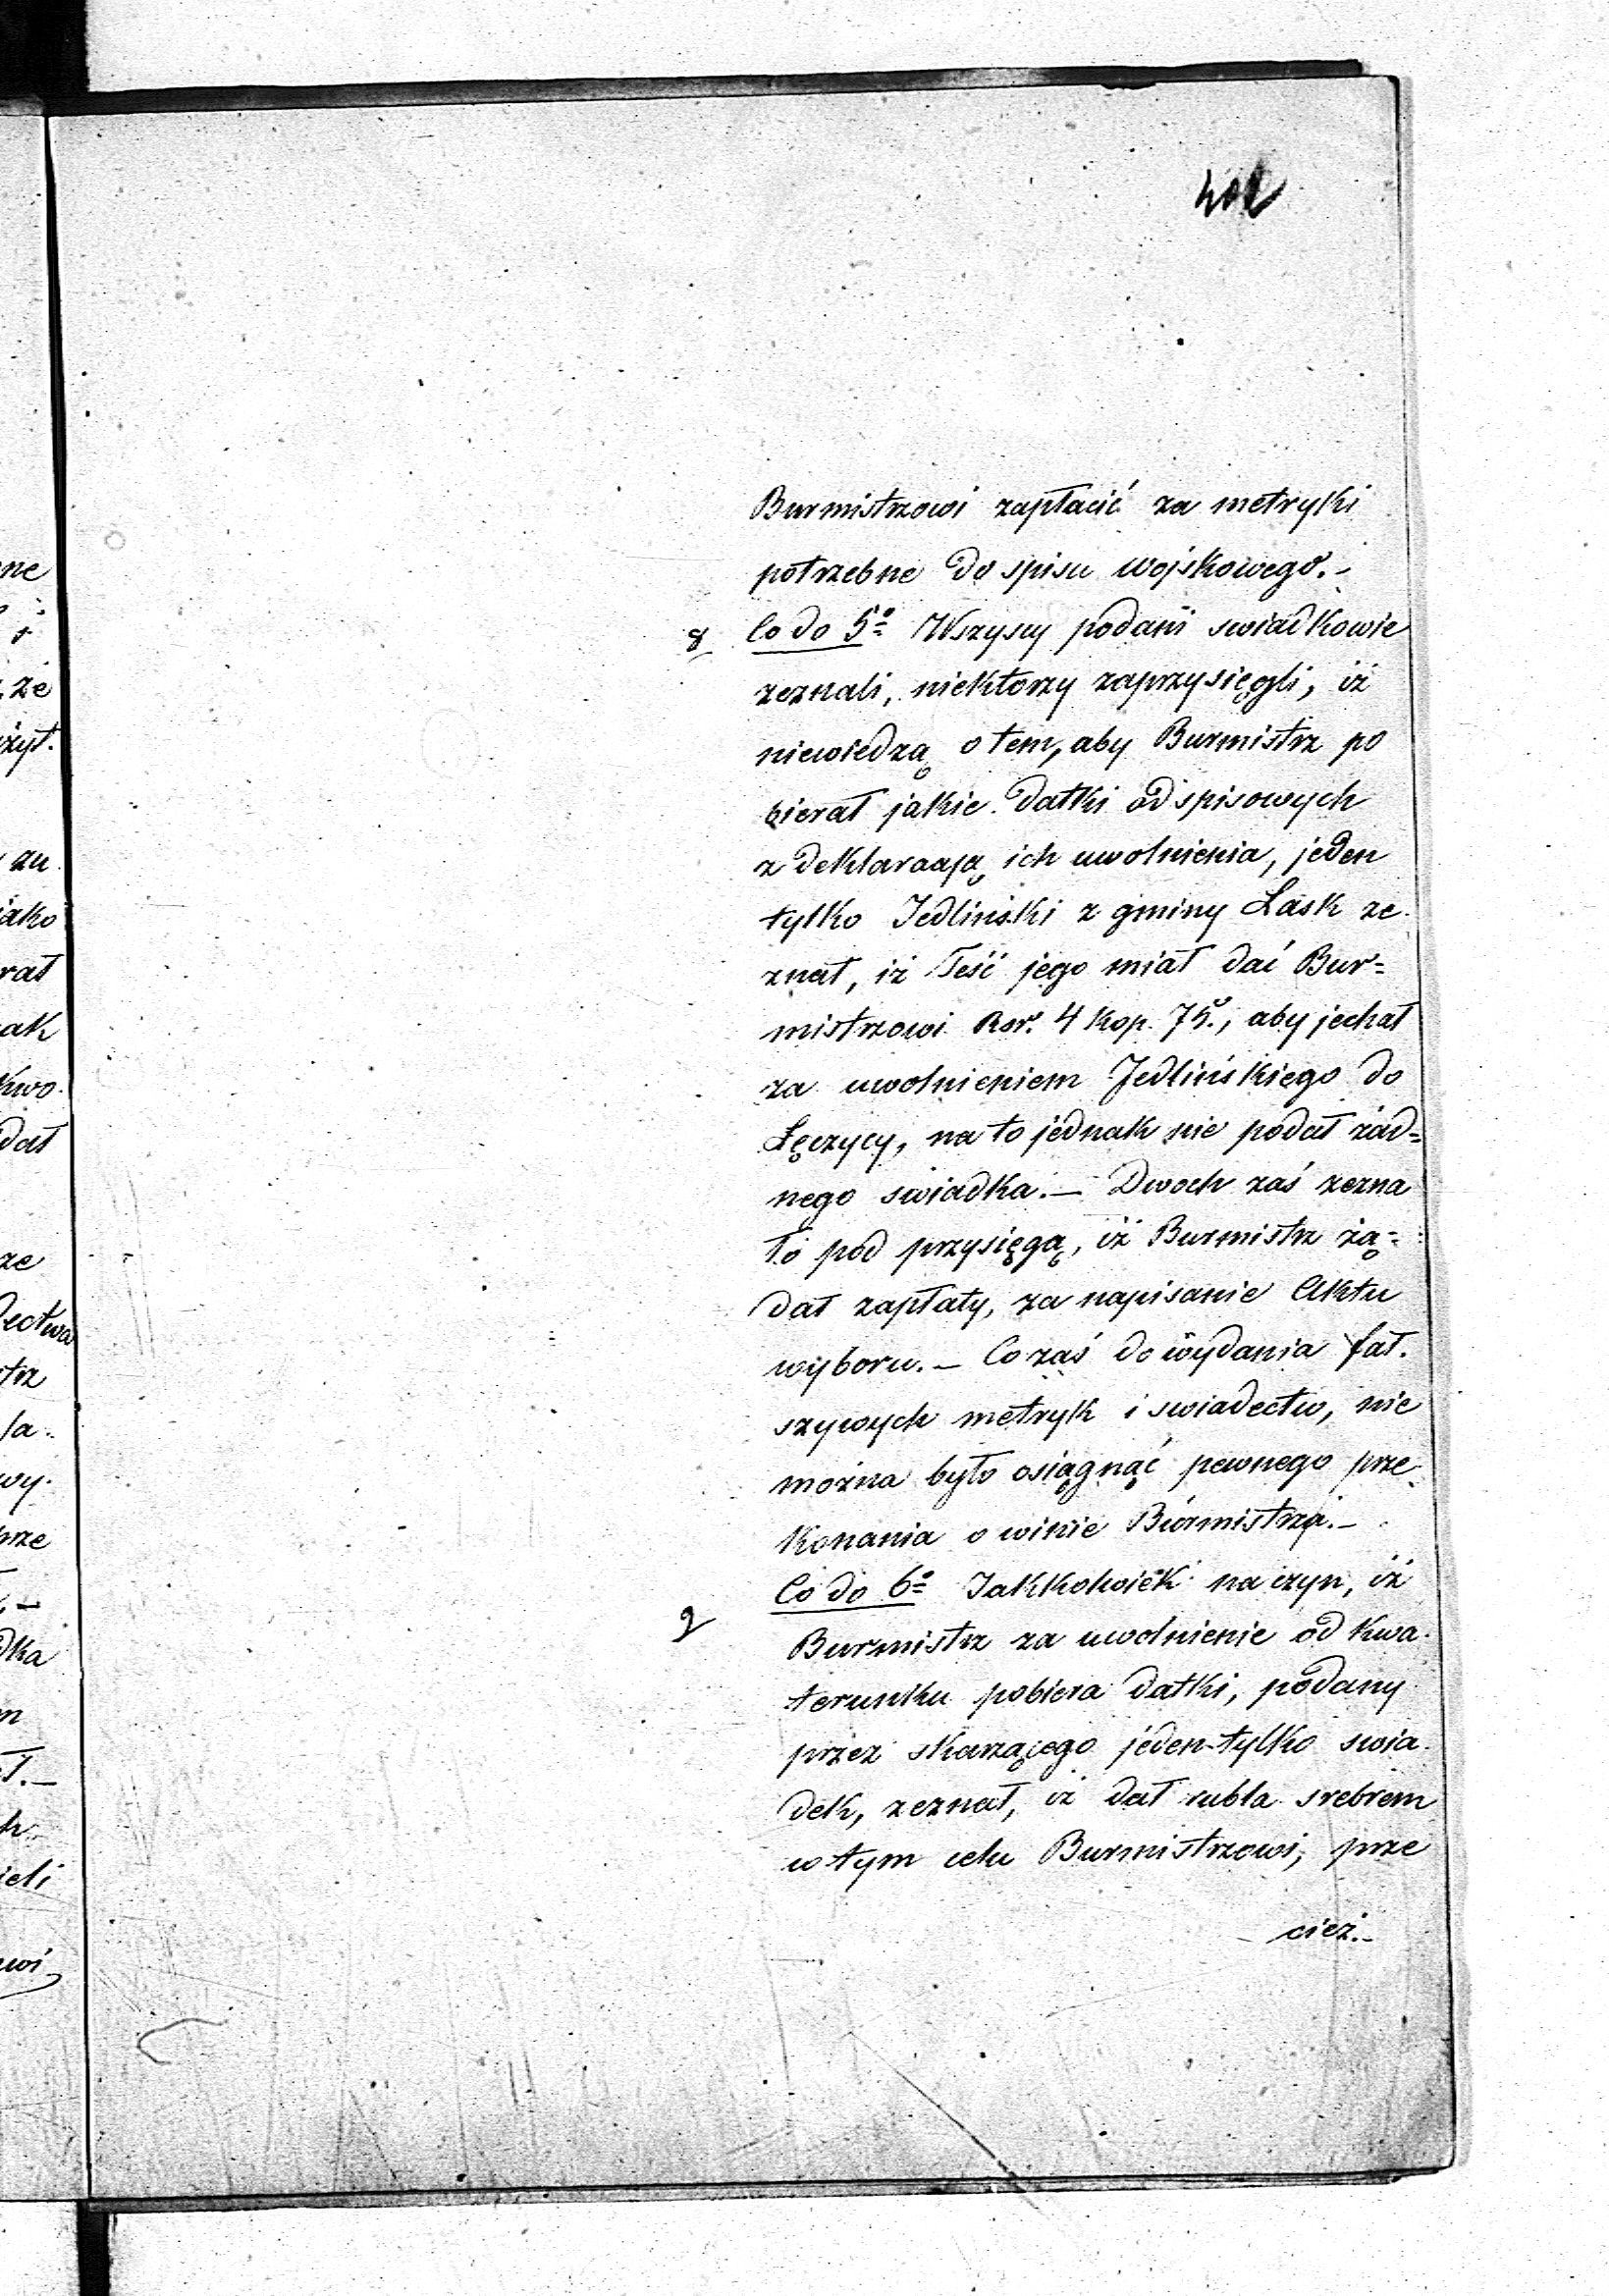 ne
że
żył.
zu
jako
rał
ak
kwo.
dał
ze
dectwa
trz
la.
wy.
prze
dka
m
ł.—
h
ieli
wi
Burmistrzowi zapłacić za metryki
potrzebne do spisu wojskowego.-
8 Co do 5º Wszyscy podani swiadkowie
zeznali, niektorzy zaprzysięgli, iż
niewiedzą o tem, aby Burmistrz po
bierał jakie datki od spisowych
z deklaracją ich uwolnienia, jeden
tylko Jedliński z gminy Łask ze.
znał, iż Teść jego miał dać Bur=
mistrzowi Rsr. 4 kop. 75., aby jechał
za uwolnieniem Jedlińskiego do
Łęczycy, na to jednak nie podał żad=
nego swiadka.— Dwoch zaś zezna
ło pod przysięgą, iż Burmistrz żą=
dał zapłaty, za napisanie Aktu
wyboru.— Co zaś do wydania fał.
szywych metryk i swiadectw, nie
można było osiągnąć pewnego prze.
konania o winie Burmistrza.—
9 Co do 6º Jakkolwiek na czyn, iż
Burmistrz za uwolnienie od kwa.
terunku pobiera datki, podany
przez skarzącego jeden tylko swia.
dek, zeznał, iż dał rubla srebrem
w tym celu Burmistrzowi, prze
cież.-